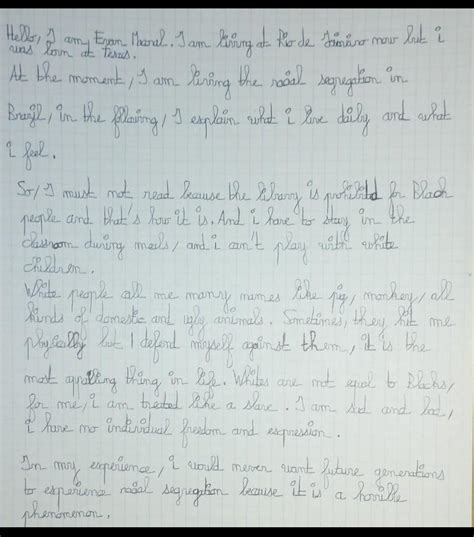 Hello, I am Evan Manel. I am living at Rio de Janiro now but i
was born at Texas.
At the moment, I am living the racial segregation in
Brazil, in the following, I explain what i live daily and what
i feel.
So, I must not read because the library is prohibited for Black
people and that's how it is. And i have to stay in the
classroom during meals, and i can't play with white
children.
White people call me many names like pig, monkey, all
kinds of domestic and ugly animals. Sometimes, they hit me
physically but I defend myself against them, it is the
most appalling thing in life. Whites are not equal to Blacks,
for me, i am treated like a slave. I am sad and bad,
i have no individual freedom and expression.
In my experience, i would never want future generations
to experience racial segregation because it is a horrible
phenomenon.